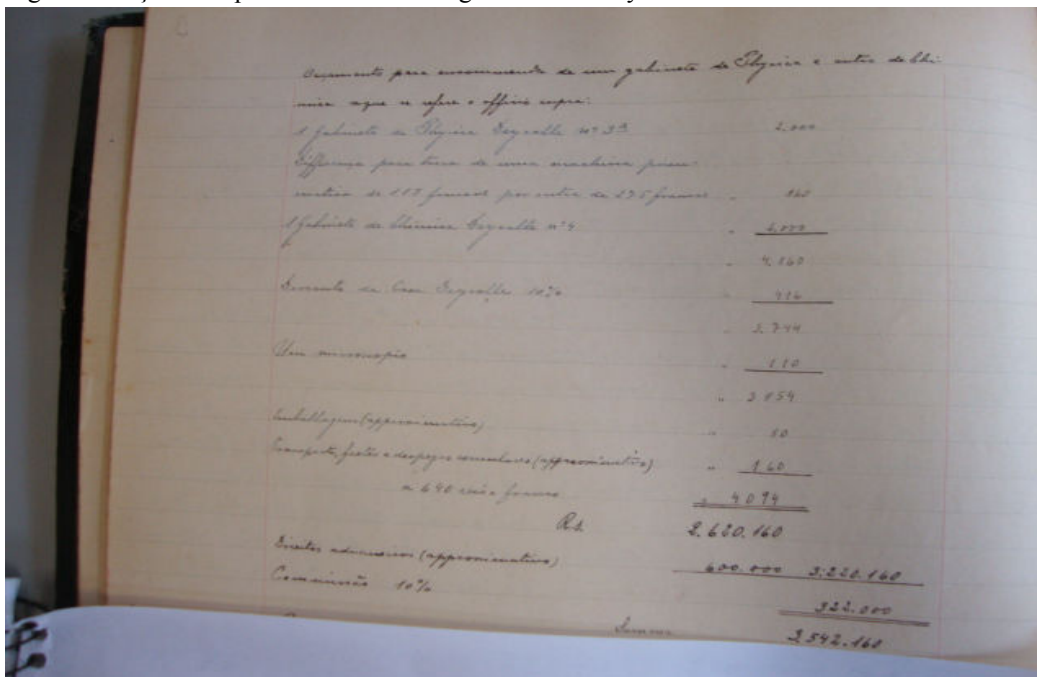 Orçamento para encommenda de um gabinete de Physica e outro de Chi-
mica a que se refere o officio supra:
1 Gabinete de Physica Deyrolle nº 3ª 2.000
Differença para troca de uma machina pneu-
matica de 115 francos por outra de 275 francos " 160
1 Gabinete de Chimica Deyrolle nº 4 " 2.000
" 4.160
Desconto da Casa Deyrolle 10% " 416
" 3.744
Um microscopio " 110
" 3 854
Emballagem (approximativo) " 80
Transporte, fretes e despezas consulares (approximativo) " 160
a 640 reis o franco " 4094
Rs. 2.620.160
Direitos aduaneiros (approximativo) 600.000 3:220.160
Commissão 10% 322.000
Somma 3.542.160